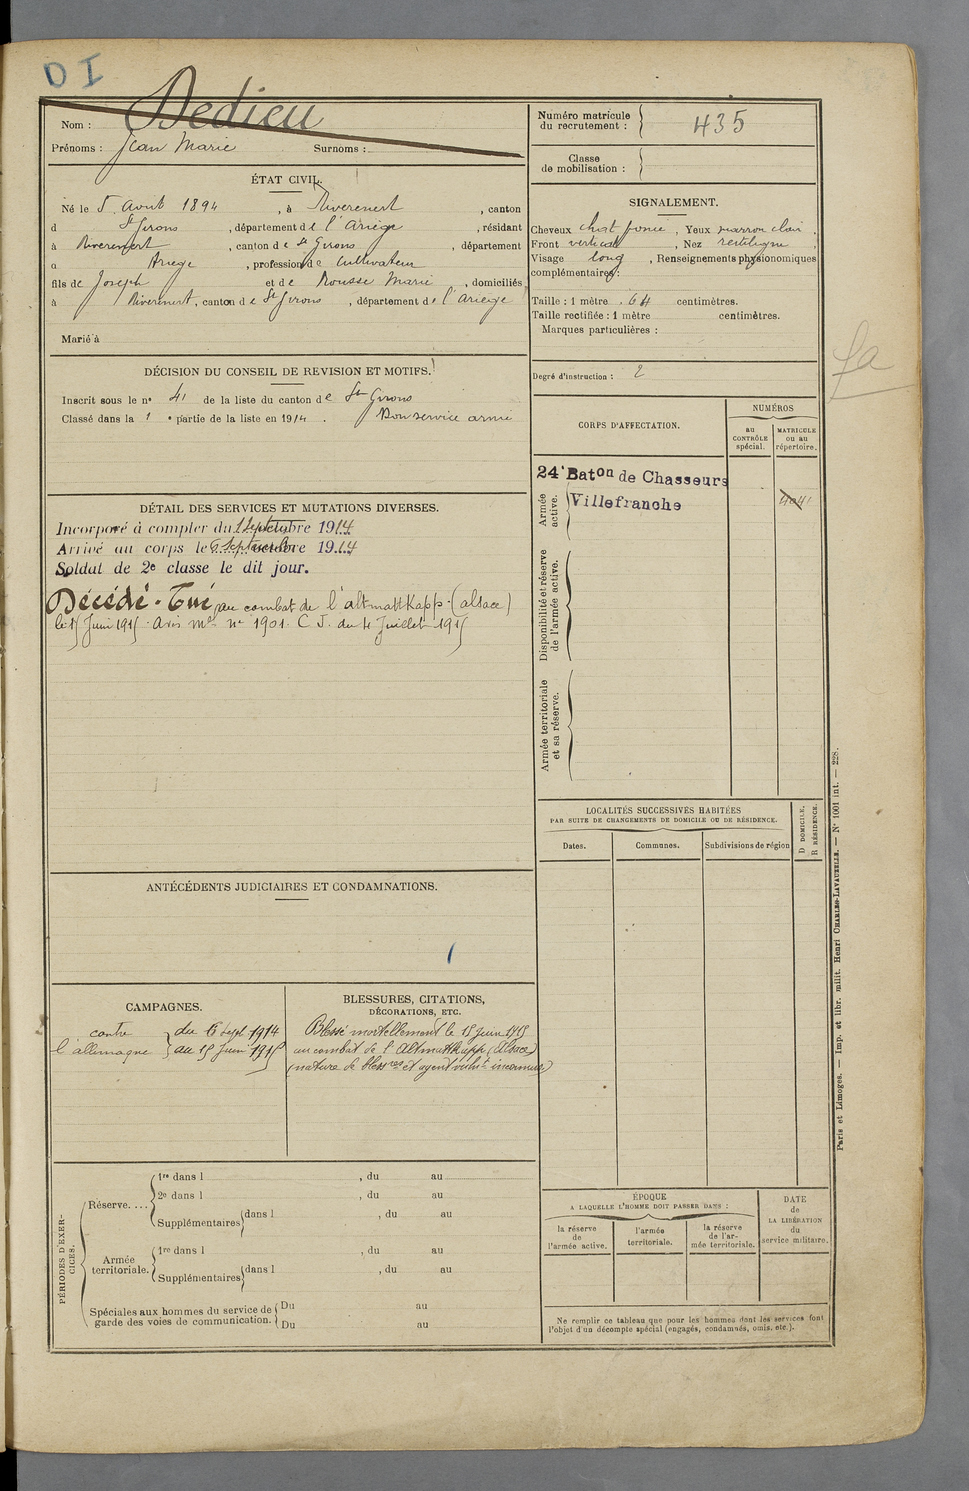 D I
Nom : Dedieu
Prénoms : Jean Marie Surnoms :
Numéro matricule
du recrutement : 435
Classe
de mobilisation :
ÉTAT CIVIL.
Né le 5 Août 1894, à Rivèrenert, canton
d St Girons, département de l'Ariège, résidant
à Rivèrenert, canton de St Girons, département
d Ariège, profession de cultivateur
fils de Joseph et de Rousse Marie, domiciliés
à Rivèrenert, canton de St Girons, département de l'Ariège
Marié à
SIGNALEMENT.
Cheveux chat. foncé, Yeux marron clair.
Front vertical, Nez rectiligne,
Visage long, Renseignements physionomiques
complémentaires :
Taille : 1 mètre .64 centimètres.
Taille rectifiée : 1 mètre centimètres.
Marques particulières :
DÉCISION DU CONSEIL DE REVISION ET MOTIFS.
Inscrit sous le no 41 de la liste du canton de St Girons
Classé dans la 1 e partie de la liste en 1914. Bon service armé
Degré d'instruction : 2
CORPS D'AFFECTATION.
NUMÉROS
au
CONTRÔLE
spécial.
MATRICULE
ou au
répertoire.
Armée
active.
24e Baton de Chasseurs
Villefranche
4041
Disponibilité et réserve
de l'armée active.
Armée territoriale
et sa réserve.
DÉTAIL DES SERVICES ET MUTATIONS DIVERSES.
Incorporé à compter du 1 Septembre 1914
Arrivé au corps le 6 Septembre 1914
Soldat de 2e classe le dit jour.
Décédé - Tué au combat de l'altmattkopp (alsace)
le 15 Juin 1915. Avis mel no 1901. C J. du 4 Juillet 1915
LOCALITÉS SUCCESSIVES HABITÉES
PAR SUITE DE CHANGEMENTS DE DOMICILE OU DE RÉSIDENCE.
Dates.
Communes.
Subdivisions de région
D DOMICILE.
R RÉSIDENCE.
ANTÉCÉDENTS JUDICIAIRES ET CONDAMNATIONS.
CAMPAGNES.
contre
l'allemagne
du 6 Sept 1914
au 15 Juin 1915
BLESSURES, CITATIONS,
DÉCORATIONS, ETC.
Blessé mortellement le 15 Juin 1915
au combat de l'Altmattkopp (Alsace)
(nature de bless res et agent vulnt inconnus)
PÉRIODES D'EXER-
CICES.
Réserve....
1re dans l , du au
2e dans l , du au
Supplémentaires dans l , du au
Armée
territoriale.
1re dans l , du au
Supplémentaires dans l , du au
Spéciales aux hommes du service de
garde des voies de communication.
Du au
Du au
ÉPOQUE
A LAQUELLE L'HOMME DOIT PASSER DANS :
la réserve
de
l'armée active.
l'armée
territoriale.
la réserve
de l'ar-
mée territoriale.
DATE
de
LA LIBÉRATION
du
service militaire.
Ne remplir ce tableau que pour les hommes dont les services font
l'objet d'un décompte spécial (engagés, condamnés, omis. etc.).
Paris et Limoges. — Imp. et libr. milit. Henri CHARLES-LAVAUZELLE. — No 1001 int. — 228.